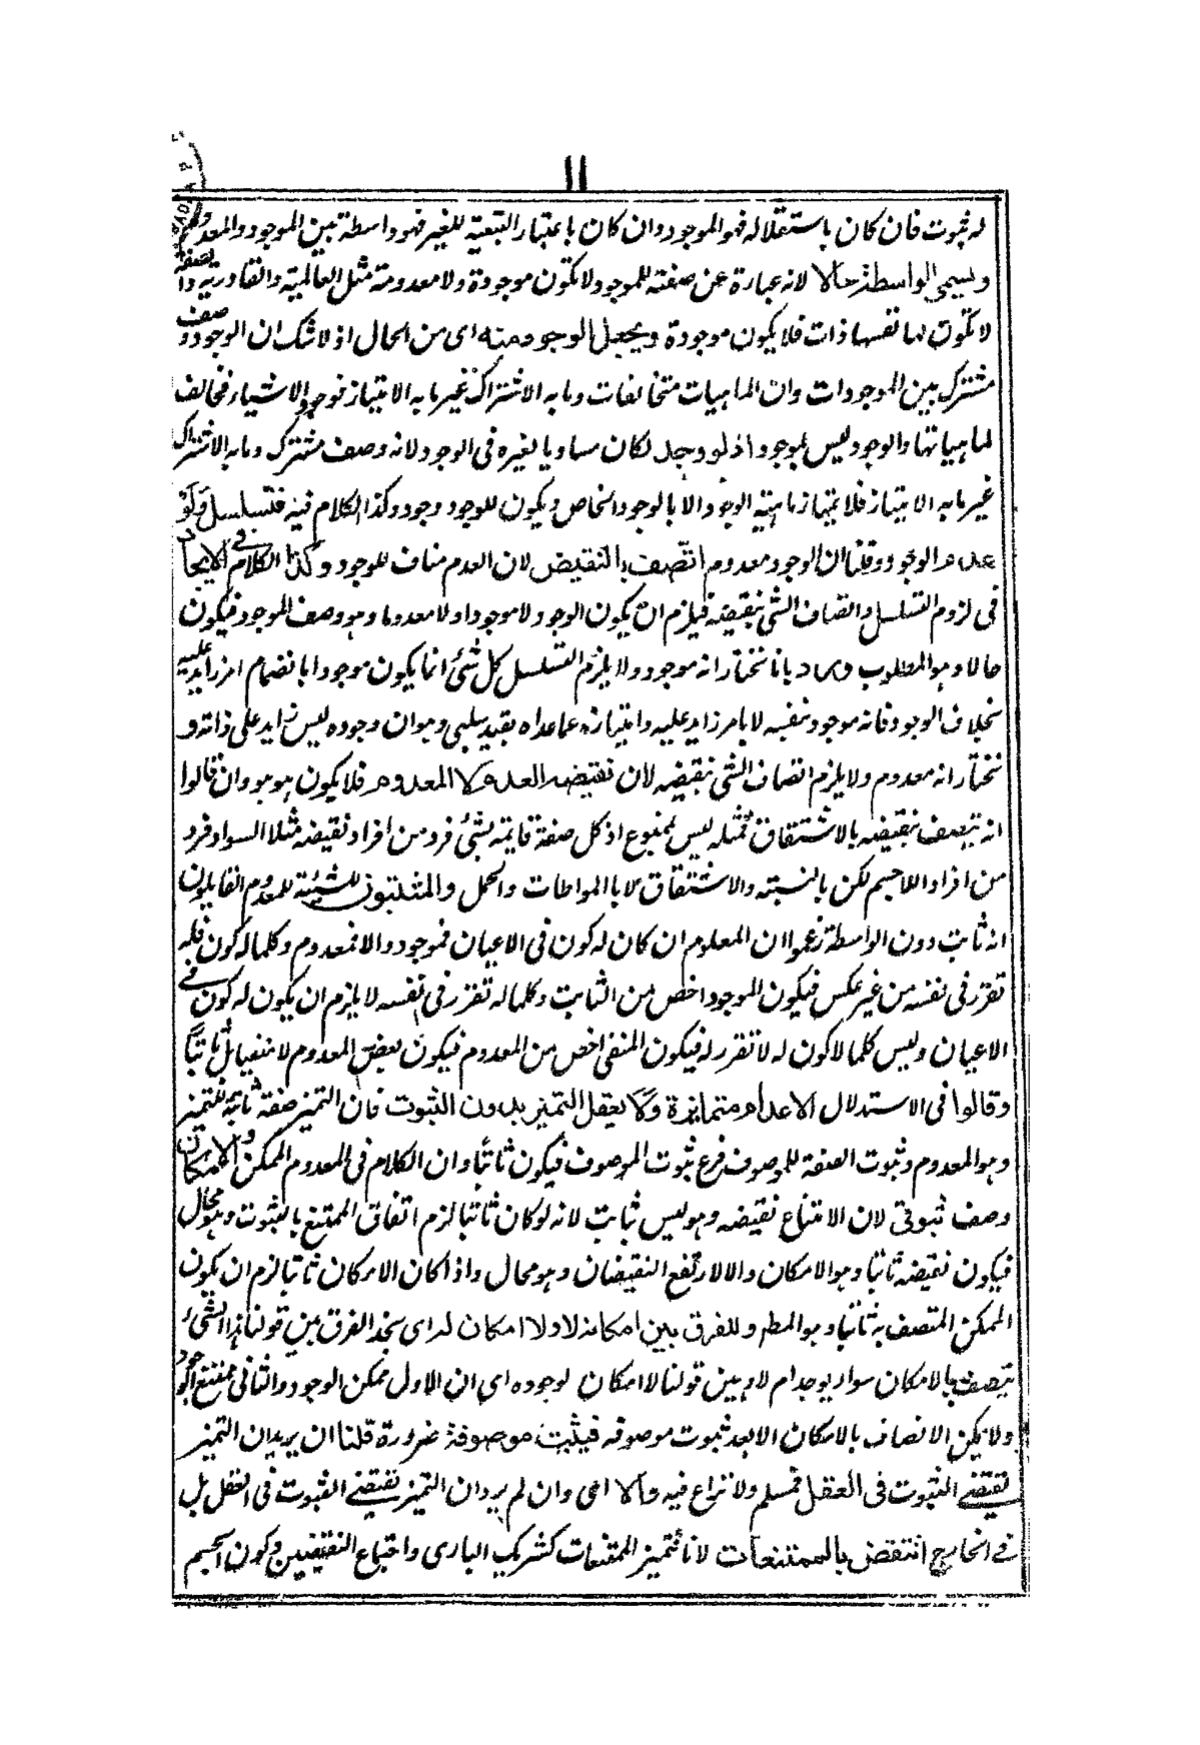 ١١
له ثبوت فان كان باستقلاله فهو الموجود وان كان باعتبار التبعية للغير فهو واسطة بين الموجود والمعدوم
ويسمى الواسطة حالا لانه عبارة عن صفة للموجود لا تكون موجودة ولا معدومة مثل العالمية والقادرية والصفة
لا تكون لها نفسها ذات فلا يكون موجودة ويجعل الوجود منه اى من الحال اذ لا شك ان الوجود وصف
مشترك بين الموجودات وان الماهيات متخالفات وما به الاشتراك غير ما به الامتياز فوجود الاشياء مخالف
لماهياتها والوجود ليس بموجود اذ لو وجد لكان مساويا لغيره فى الوجود لانه وصف مشترك وما به الاشتراك
غير ما به الامتياز فلا يمتاز ماهية الوجود الا بالوجود الخاص ويكون للوجود وجود وكذا الكلام فيه فتسلسل ولو
عدم الوجود وقلنا ان الوجود معدوم اتصف بالنقيض لان العدم مناف للوجود وكذا الكلام فى الايجاد
فى لزوم التسلسل واتصاف الشئ بنقيضه فيلزم ان يكون الوجود لا موجودا ولا معدوما وهو وصف الموجود فيكون
حالا وهو المطلوب ورد بانا نختار انه موجود ولا يلزم التسلسل كل شئ انما يكون موجودا بانضمام امر زايد عليه
بخلاف الوجود فانه موجود بنفسه لا بامر زايد عليه وامتيازه عما عداه بقيد سلبى وهو ان وجوده ليس زايد على ذاته و
نختار انه معدوم ولا يلزم اتصاف الشئ بنقيضه لان نقيضه العدم لا المعدوم فلا يكون هو هو وان قالوا
انه يتصف بنقيضه بالاشتقاق فمثله ليس بممنوع اذ كل صفة قايمة بشئ فرد من افراد نقيضه مثلا السواد فرد
من افراد اللاجسم لكن بالنسبة والاشتقاق لا بالمواطات والحمل والمثبتون للشيئة للمعدوم القايلون
انه ثابت دون الواسطة زعموا ان المعلوم ان كان له كون فى الاعيان فموجود والا فمعدوم وكلما له كون فله
تقرر فى نفسه من غير عكس فيكون الموجود اخص من الثابت وكلما له تقرر فى نفسه لا يلزم ان يكون له كون فى
الاعيان وليس كلما لا كون له لا تقرر له فيكون المنفى اخص من المعدوم فيكون بعض المعدوم لا منفيا بل ثابتا
وقالوا فى الاستدلال الاعدام متمايزة ولا يعقل التميز بدون الثبوت فان التميز صفة ثابتة للمتميز
وهو المعدوم وثبوت الصفة للموصوف فرع ثبوت الموصوف فيكون ثابتا وان الكلام فى المعدوم الممكن والامكان
وصف ثبوتى لان الامتناع نقيضه وهو ليس ثابت لانه لو كان ثابتا لزم اتفاق الممتنع بالثبوت وهو محال
فيكون نقيضه ثابتا وهو الامكان والا لارتفع النقيضان وهو محال واذا كان الامكان ثابتا لزم ان يكون
الممكن المتصف به ثابتا وهو المطم وللفرق بين امكانه لا ولا امكان له اى نجد الفرق بين قولنا هذا الشئ
يتصف بالامكان سواء يوجد ام لا وبين قولنا لا امكان لوجوده اى ان الاول ممكن الوجود والثانى ممتنع الوجود
ولا يمكن الاتصاف بالامكان الا بعد ثبوت موصوفه فيثبت موصوفه ضرورة قلنا ان يريد ان التميز
يقتضى الثبوت فى العقل فمسلم ولا نزاع فيه والا اى وان لم يرد ان التميز يقتضى الثبوت فى العقل بل
فى الخارج انتقض بالممتنعات لانا نتميز الممتنعات كشريك البارى واجتماع النقيضين وكون الجسم